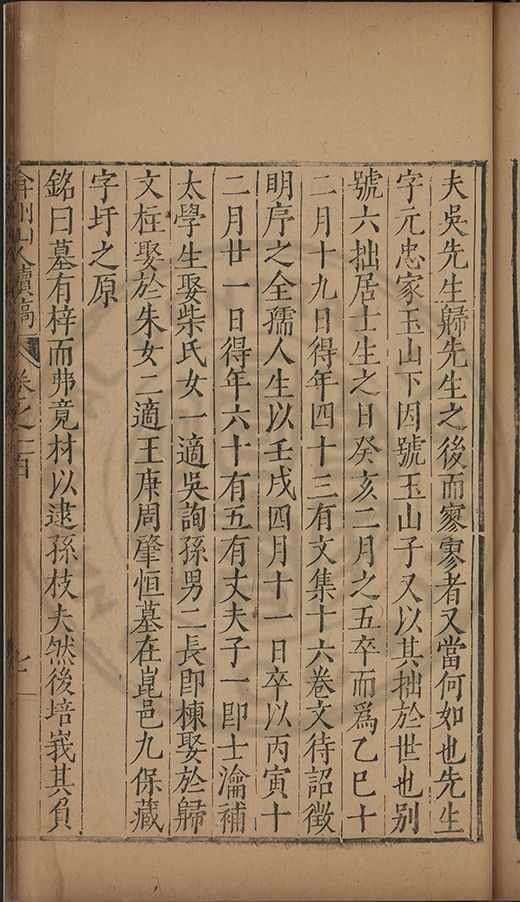 夫吳先生歸先生之後而寥寥者又當何如也先生
字元忠家玉山下因號玉山子又以其拙於世也別
號六拙居士生之日癸亥二月之五卒而爲乙巳十
二月十九日得年四十三有文集十六卷文待詔徵
明序之全孺人生以壬戌四月十一日卒以丙寅十
二月廿一日得年六十有五有丈夫子一即士瀹補
太學生娶柴氏女一適吳詢孫男二長即棟娶於歸
文枉娶於朱女二適王庚周肇恒墓在崑邑九保藏
字圩之原
銘曰墓有梓而弗竟材以逮孫枝夫然後培峩其負
弇州山人續稿 卷之一百 七